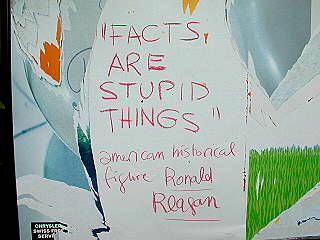 "FACTS
ARE
STUPID
THINGS"
american historical
figure Ronald
Reagan
CHRYSLER
SWISS-FREE
SERV